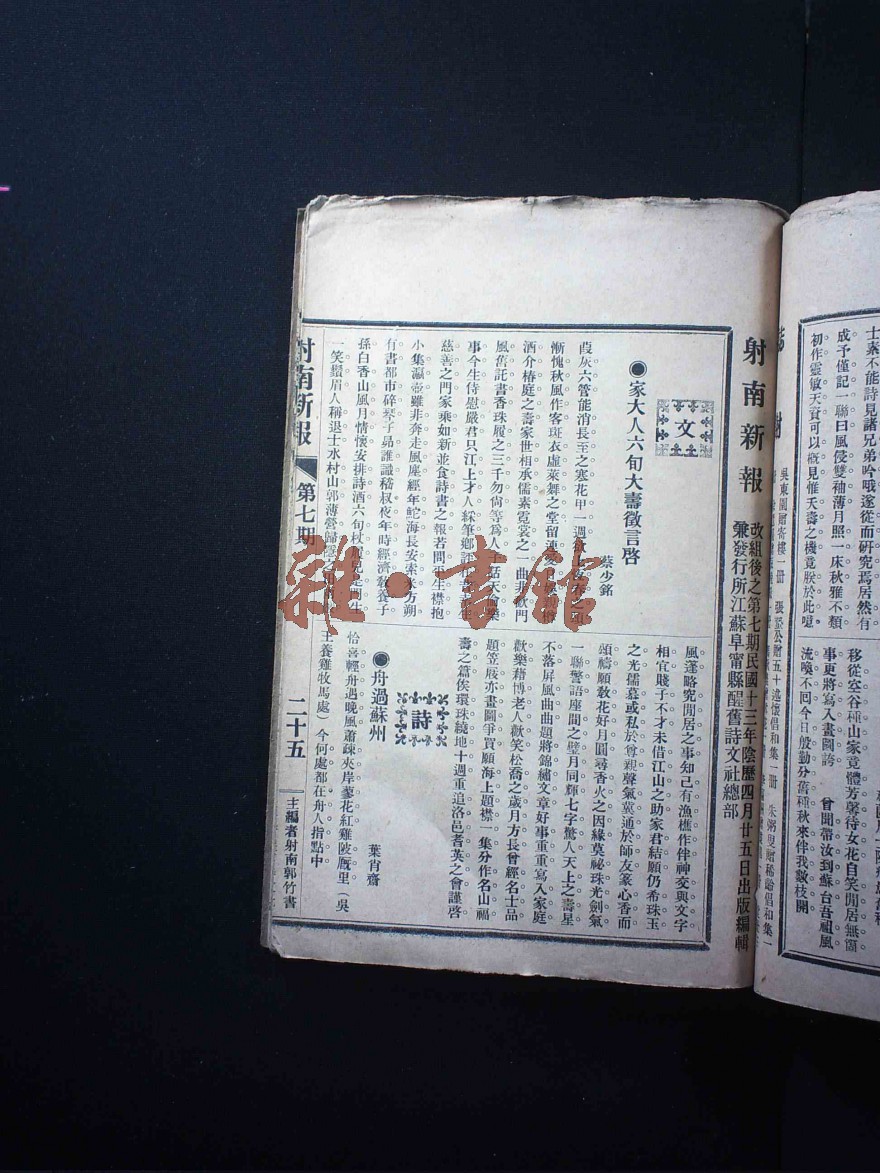 士素不能詩見諸兄弟吟哦遂從而研究焉居然有
成予僅記一聯曰風侵雙袖薄月照一床秋雅不類
初作靈敏天資可以概見惟夭壽之機竟朕於此噫
移從空谷種山家竟體芳馨待女花自笑閒居無箇
事更將寫入畫圖誇 曾聞帶汝到蘇台吾祖風
流喚不回今日般勤分舊種秋來伴我數枝開
吳東園贈寄樓一冊
張
公贈五十述懷倡和集一冊
朱弼臾贈稀齡倡和集一
射南新報
改組後之第七期民國十三年陰歷四月廿五日出版編輯
兼發行所江蘇阜甯縣醒舊詩文社總部
文
●家大人六旬大壽徵言啓
蔡少銘
葭灰六管能消長至之寒花甲一週
慚愧秋風作客斑衣虛萊舞之堂留連愛
酒介椿庭之壽家世相承儒素霓裳之一曲非歡門
風舊託書香珠履之三千勿尙等爲人子話天倫樂
事今生侍慰嚴君只江上才人綵筆鄉評
慈善之門家乘如新並食詩書之報若閒生襟抱
小集瀛壺雖非奔走風座經年蛇海長安索米方朔
有書都市碎琴子昻誰識嵇叔夜年時經濟敎養子
孫白香山風月情懷安排詩酒六旬杖
一笑鬚眉人稱退士水村山郭薄營歸
風蓬略究閒居之事知己有漁樵作伴神交與文字
相宜賤子不才未借江山之助家君結願仍希珠玉
之光儒慕或私於尊親聲氣冀通於師友篆心香而
頌禱願敎花好月圓尋香火之因緣莫祕珠光劍氣
一聯警語座間之璧月同輝七字驚人天上之壽星
不落屏風曲曲題將錦繡文章好事重重寫入家庭
歡樂藉博老人歡笑松喬之歲月方長曾經名士品
題笠屐亦畫圖爭買願海上題襟一集分作名山福
壽之篇俟環珠繞地十週重追洛邑耆英之會謹啓
詩
●舟過蘇州
葉肖齋
恰喜輕舟遇晚風蕭疎夾岸蓼花紅雞陂厩里(吳
王養雞牧馬處)今何處都在舟人指點中
射南新報
第七期
二十五
主編者射南郭竹書
雜·書館